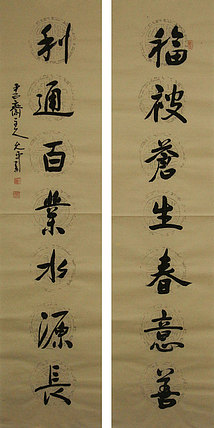 福被蒼生春意善
利通百業水源長